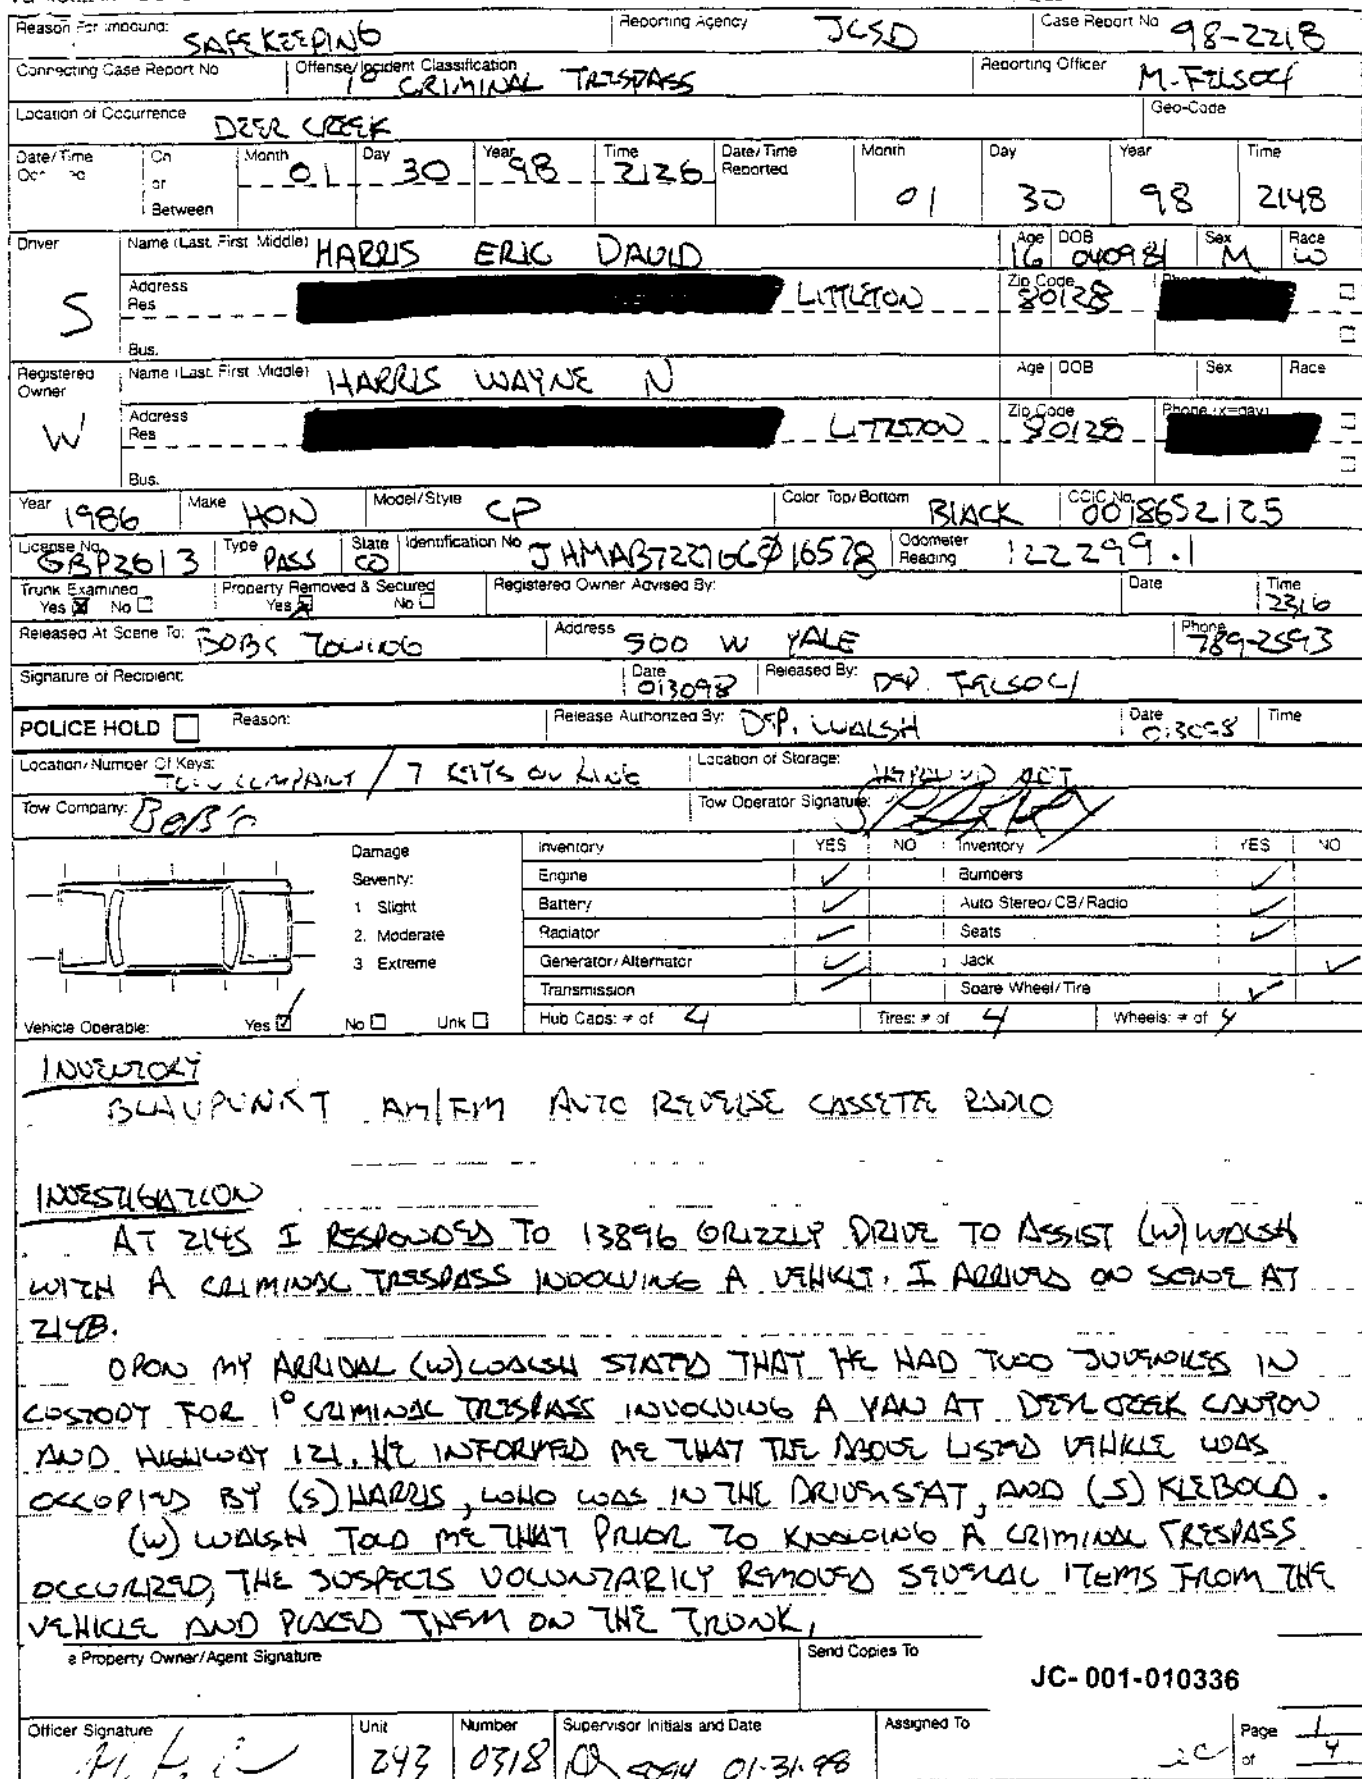 Reason For Impound: SAFEKEEPING Reporting Agency JCSD Case Report No 98-2218
Connecting Case Report No Offense/Incident Classification 1° CRIMINAL TRESPASS Reporting Officer M. FELSOCI
Location of Occurrence DEER CREEK Geo-Code
Date/Time On or Between Month 01 Day 30 Year 98 Time 2126 Date/Time Reported Month 01 Day 30 Year 98 Time 2148
Driver Name (Last First Middle) HARRIS ERIC DAVID Age 16 DOB 040981 Sex M Race W
S Address Res LITTLETON Zip Code 80128
Bus.
Registered Owner Name (Last First Middle) HARRIS WAYNE N Age DOB Sex Race
W Address Res LITTLETON Zip Code 80128 Phone (x=day)
Bus.
Year 1986 Make HON Model/Style CP Color Top/Bottom BLACK CCIC No. 0018652125
License No GBP2613 Type PASS State CO Identification No Odometer Reading 122299.1
Trunk Examined Yes No Property Removed & Secured Yes No Registered Owner Advised By: Date Time 2316
Released At Scene To: BOBS TOWING Address 500 W YALE Phone 789-2593
Signature of Recipient: Date 013098 Released By: DEP. FELSOCI
POLICE HOLD Reason: Release Authorized By: DEP. WALSH Date 013098 Time
Location/Number Of Keys: TOW COMPANY / 7 KEYS ON RING Location of Storage:
Tow Company: Bob's Tow Operator Signature:
Damage Inventory YES NO Inventory YES NO
Severity: Engine ✓ Bumpers ✓
1 Slight Battery ✓ Auto Stereo/CB/Radio ✓
2. Moderate Radiator ✓ Seats ✓
3 Extreme Generator/Alternator ✓ Jack ✓
Transmission ✓ Spare Wheel/Tire ✓
Vehicle Operable: Yes No Unk Hub Caps: # of 4 Tires: # of 4 Wheels: # of 4
INVENTORY
BLAUPUNKT AM/FM AUTO REVERSE CASSETTE RADIO
INVESTIGATION
AT 2145 I RESPONDED TO 13896 GRIZZLY DRIVE TO ASSIST (W) WALSH
WITH A CRIMINAL TRESSPASS INVOLVING A VEHICLE. I ARRIVED ON SCENE AT
2148.
UPON MY ARRIVAL (W) WALSH STATED THAT HE HAD TWO JUVENILES IN
CUSTODY FOR 1° CRIMINAL TRESPASS INVOLVING A VAN AT DEER CREEK CANYON
AND HIGHWAY 121. HE INFORMED ME THAT THE ABOVE LISTED VEHICLE WAS
OCCUPIED BY (S) HARRIS, WHO WAS IN THE DRIVERSEAT, AND (S) KLEBOLD.
(W) WALSH TOLD ME THAT PRIOR TO KNOWING A CRIMINAL TRESPASS
OCCURRED, THE SUSPECTS VOLUNTARILY REMOVED SEVERAL ITEMS FROM THE
VEHICLE AND PLACED THEM ON THE TRUNK,
e Property Owner/Agent Signature Send Copies To
JC-001-010336
Officer Signature Unit 243 Number 0318 Supervisor Initials and Date 01-31-98 Assigned To Page 1 of 4